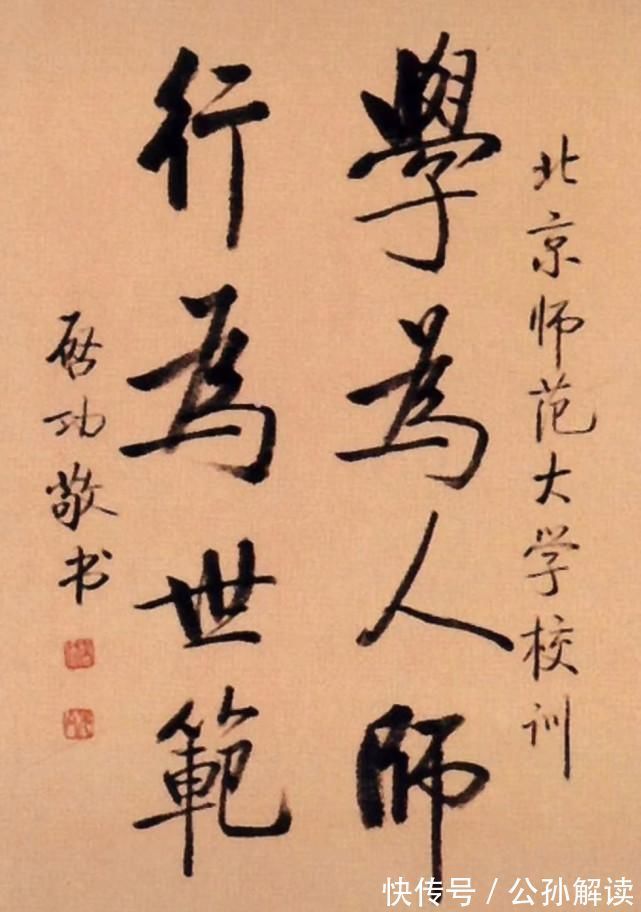 北京师范大学校训
學為人师
行為世範
启功敬书
快传号 / 公孙解读